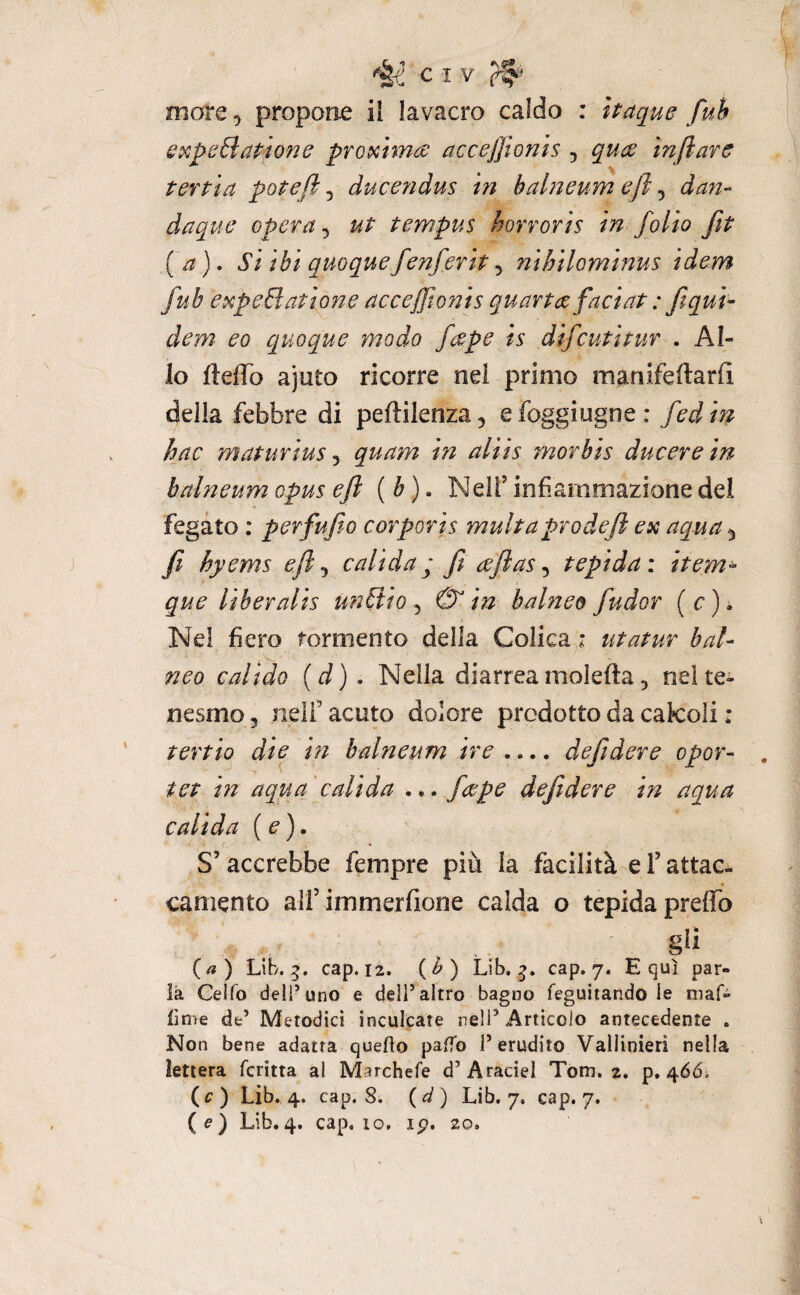 CIV
more, propone il lavacro caldo : itaque ſub
expectatione proximæ acceſſionis, quæ inſtare
tertia poteſt, ducendus in balneum eſt, dan-
daque opera, ut tempus horroris in ſolio ſit
(a). Si ibi quoque ſenſerit, nihilominus idem
ſub expectatione acceſſionis quartæ faciat : ſiqui-
dem eo quoque modo ſæpe is diſcutitur . Al-
lo ſteſſo ajuto ricorre nel primo manifeſtarſi
della febbre di peſtilenza, e ſoggiugne : ſed in
hac maturius, quam in aliis morbis ducere in
balneum opus eſt (b). Nell' infiammazione del
fegato : perfuſio corporis multa prodeſt ex aqua,
ſi hyems eſt, calida ; ſi æſtas, tepida : item-
que liberalis unctio, & in balneo ſudor (c).
Nel fiero tormento della Colica : utatur bal-
neo calido (d). Nella diarrea moleſta, nel te-
nesmo, nell' acuto dolore prodotto da calcoli :
tertio die in balneum ire .... deſidere opor-
tet in aqua calida ... ſæpe deſidere in aqua
calida (e).
S' accrebbe ſempre più la facilità e l' attac-
camento all' immerſione calda o tepida preſſo
gli
(a) Lib. 3. cap. 12. (b) Lib. 3. cap. 7. E quì par-
la Celſo dell' uno e dell' altro bagno ſeguitando le maſ-
ſime de' Metodici inculcate nell' Articolo antecedente .
Non bene adatta queſto paſſo l' erudito Vallinieri nella
lettera ſcritta al Marcheſe d' Araciel Tom. 2. p. 466.
(c) Lib. 4. cap. 8. (d) Lib. 7. cap. 7.
(e) Lib. 4. cap. 10. 19. 20.